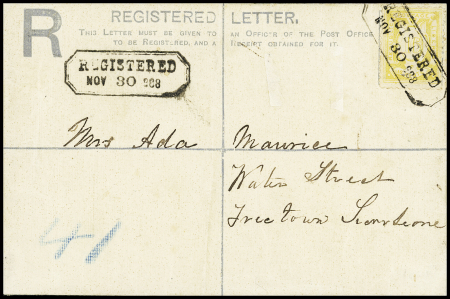 R REGISTERED LETTER.
THIS LETTER MUST BE GIVEN TO AN OFFICER OF THE POST OFFICE
TO BE REGISTERED, AND A RECEIPT OBTAINED FOR IT.
REGISTERED
NOV 30 888
REGISTERED
NOV 30 888
Mrs Ada Maurice
Water Street
Freetown Sierrleone
41